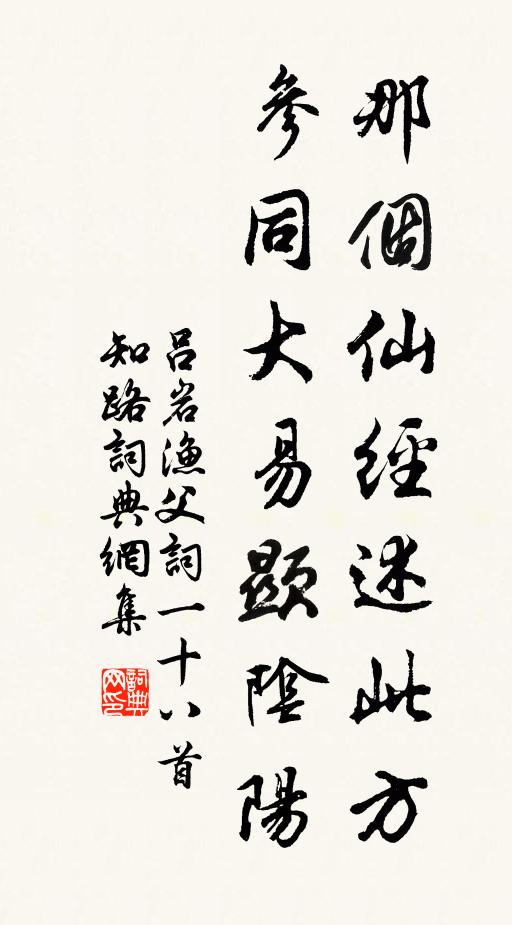 那個仙經述此方
參同大易顯陰陽
呂岩漁父詞一十八首
知路詞典網集
詞典网印